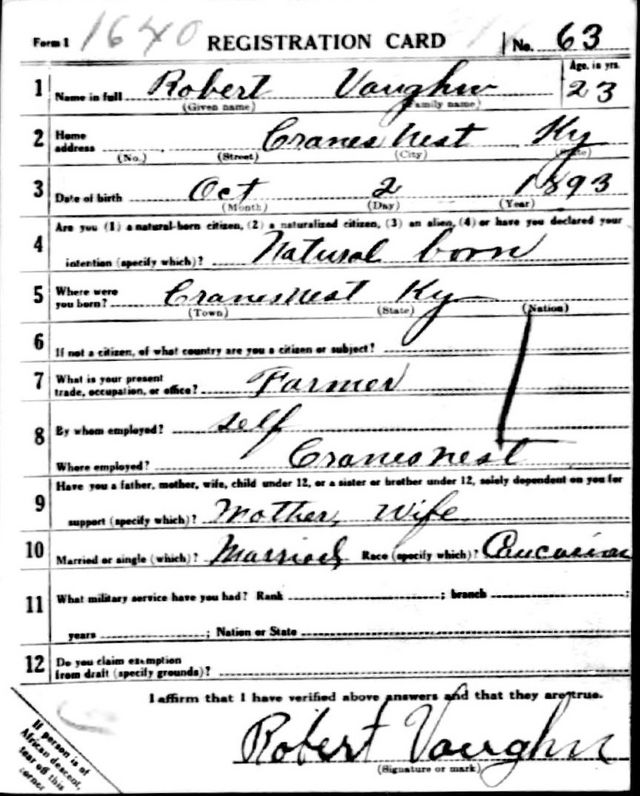 Form 1 1640 REGISTRATION CARD No. 63
1 Name in full Robert Vaughn Age, in yrs. 23
(Given name) (Family name)
2 Home address Cranes Nest Ky
(No.) (Street) (City) (State)
3 Date of birth Oct 2 1893
(Month) (Day) (Year)
Are you (1) a natural-born citizen, (2) a naturalized citizen, (3) an alien, (4) or have you declared your
4 intention (specify which)? Natural born
5 Where were you born? Cranesnest Ky
(Town) (State) (Nation)
6 If not a citizen, of what country are you a citizen or subject?
7 What is your present trade, occupation, or office? Farmer
8 By whom employed? self
Where employed? Cranesnest
9 Have you a father, mother, wife, child under 12, or a sister or brother under 12, solely dependent on you for
support (specify which)? Mother, Wife
10 Married or single (which)? Married Race (specify which)? Caucasian
11 What military service have you had? Rank ; branch ;
years ; Nation or State
12 Do you claim exemption from draft (specify grounds)?
I affirm that I have verified above answers and that they are true.
Robert Vaughn
(Signature or mark)
If person is of
African descent,
tear off this
corner